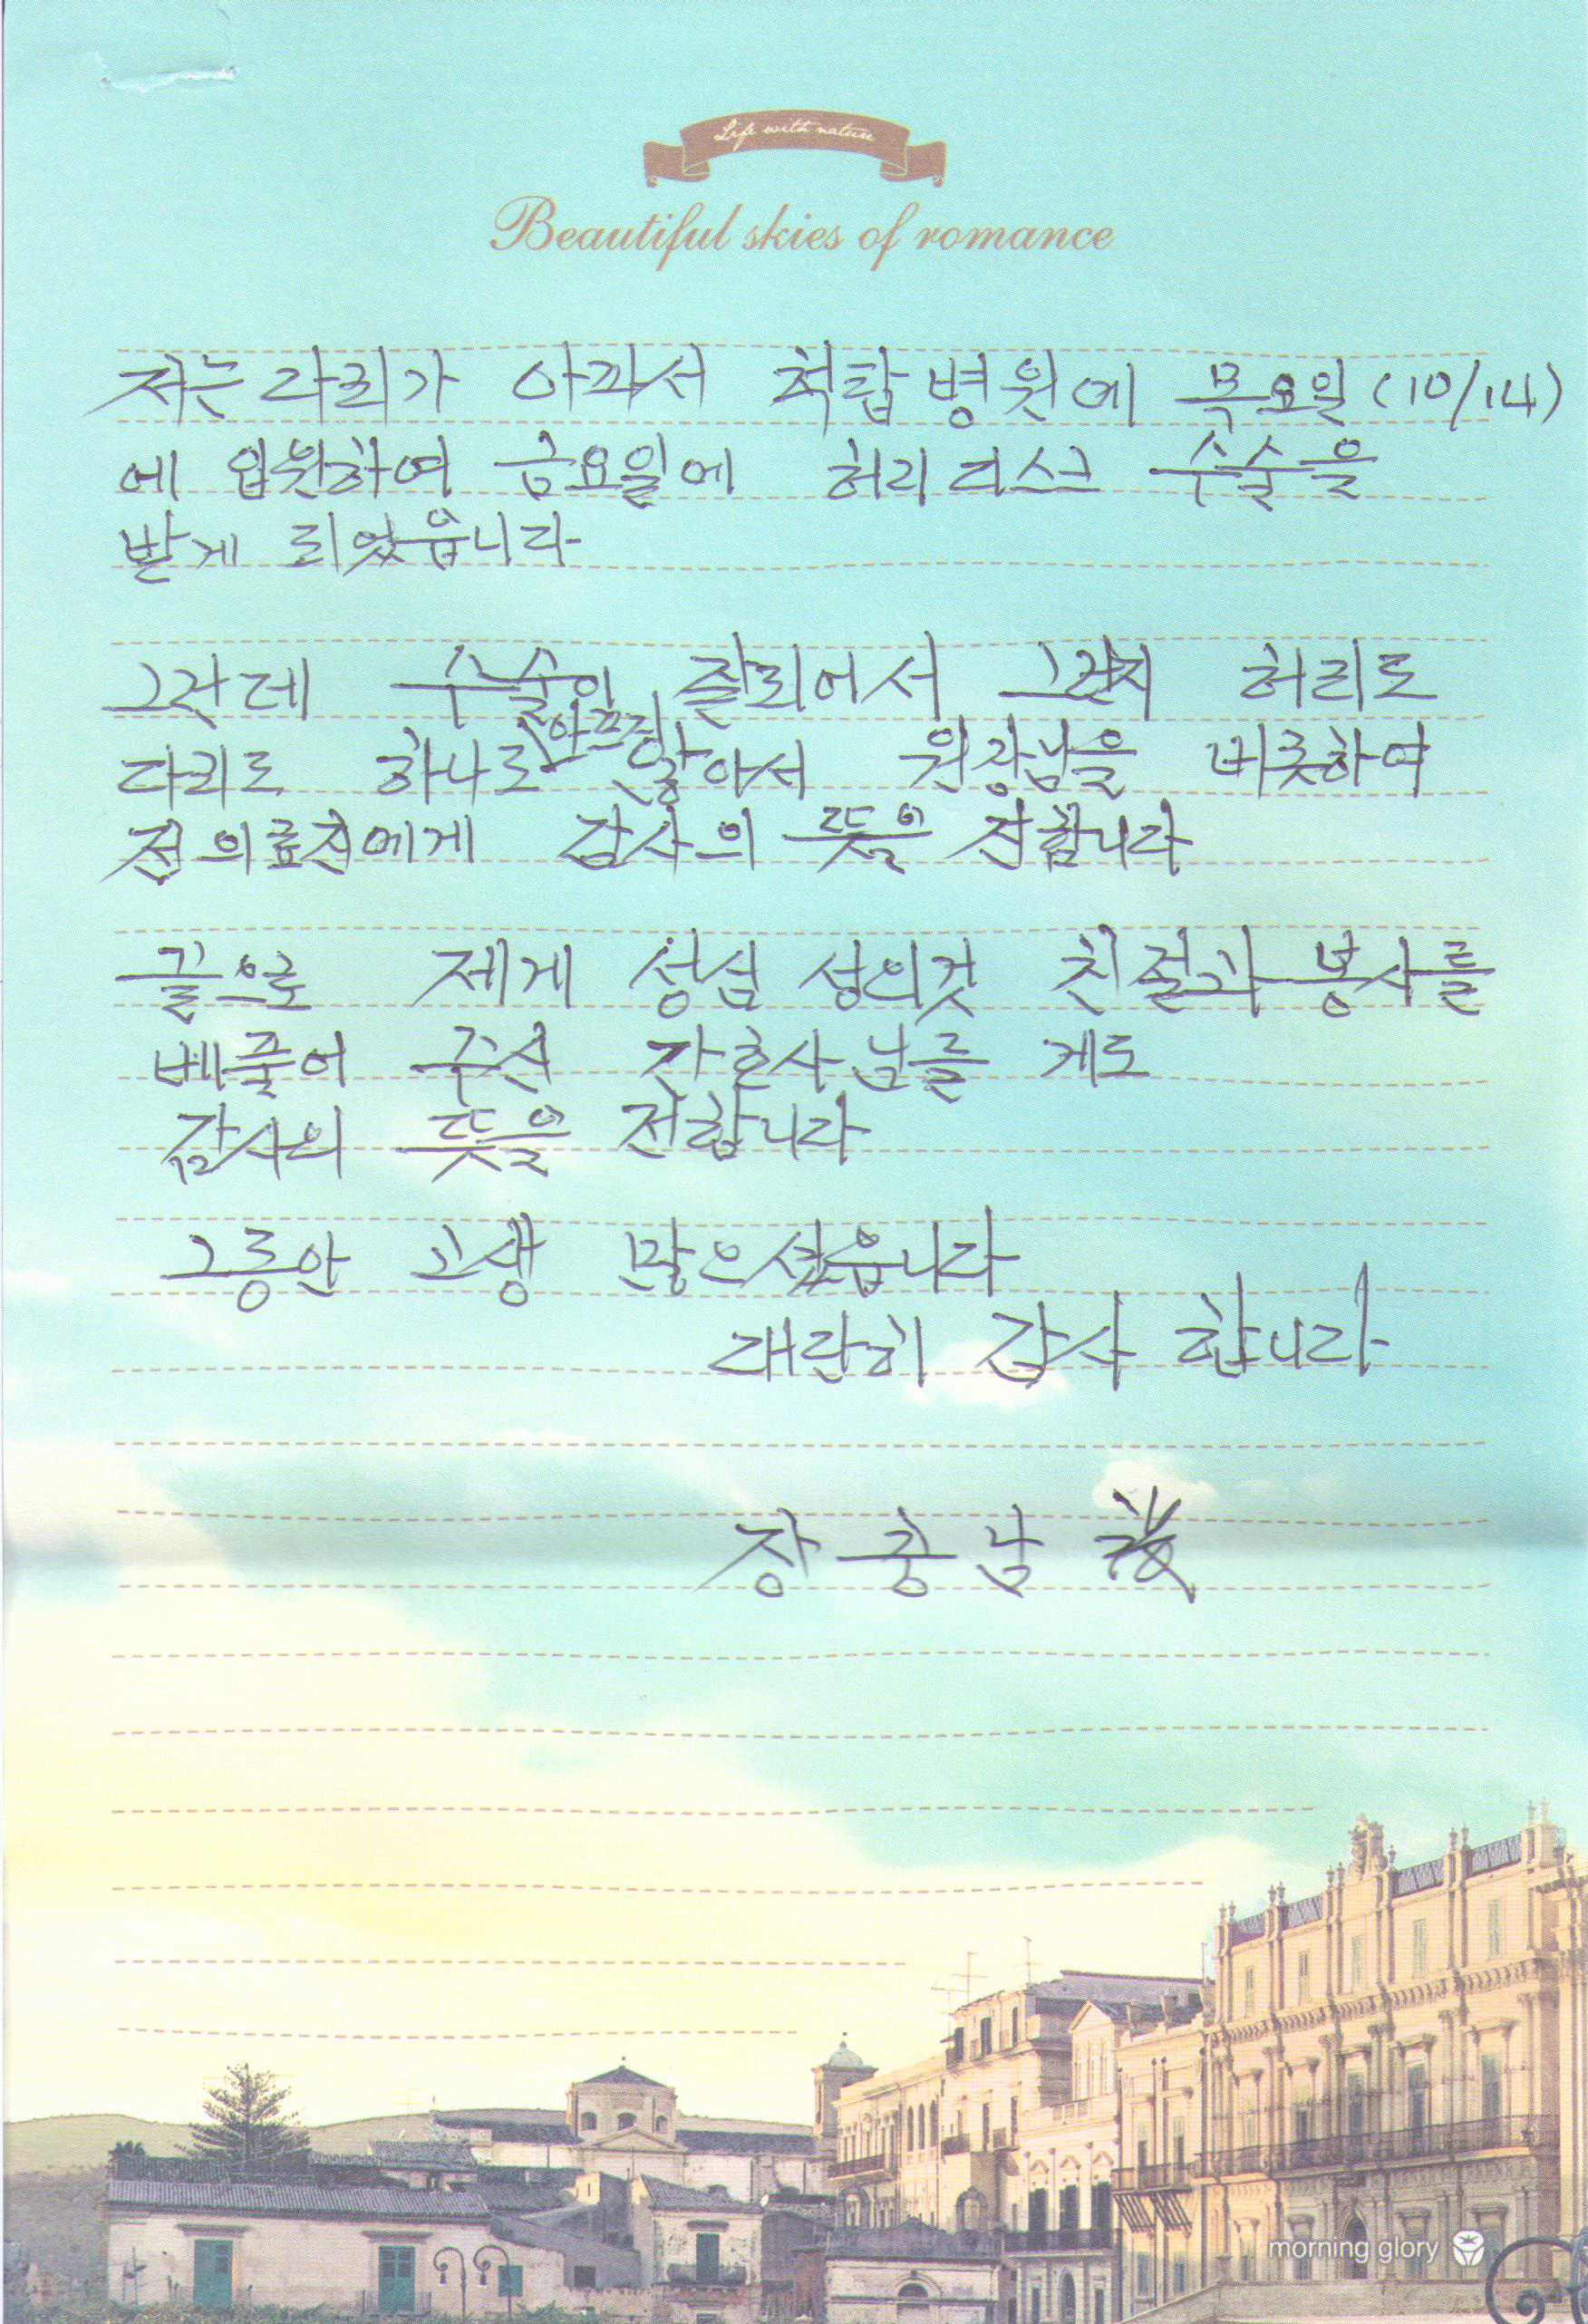 Life with nature
Beautiful skies of romance
저는 다리가 아파서 척탑병원에 목요일 (10/14)
에 입원하여 금요일에 허리 디스크 수술을
받게 되었읍니다
그런데 수술이 잘되어서 그런지 허리도
다리도 하나도 아프지 않아서 원장님을 비롯하여
전 의료진에게 감사의 뜻을 전합니다
끝으로 제게 성심 성의것 친절과 봉사를
베풀어 주신 간호사님들 게도
감사의 뜻을 전합니다
그동안 고생 많으셨읍니다
대단히 감사 합니다
장충남
morning glory